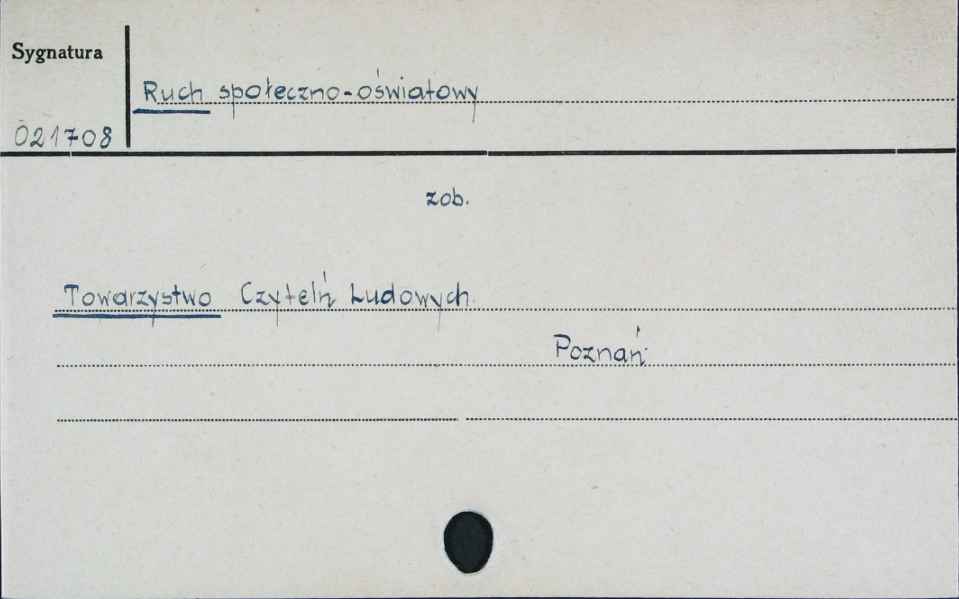 Sygnatura
Ruch społeczno-oświatowy
021708
zob.
Towarzystwo Czytelń Ludowych.
Poznań